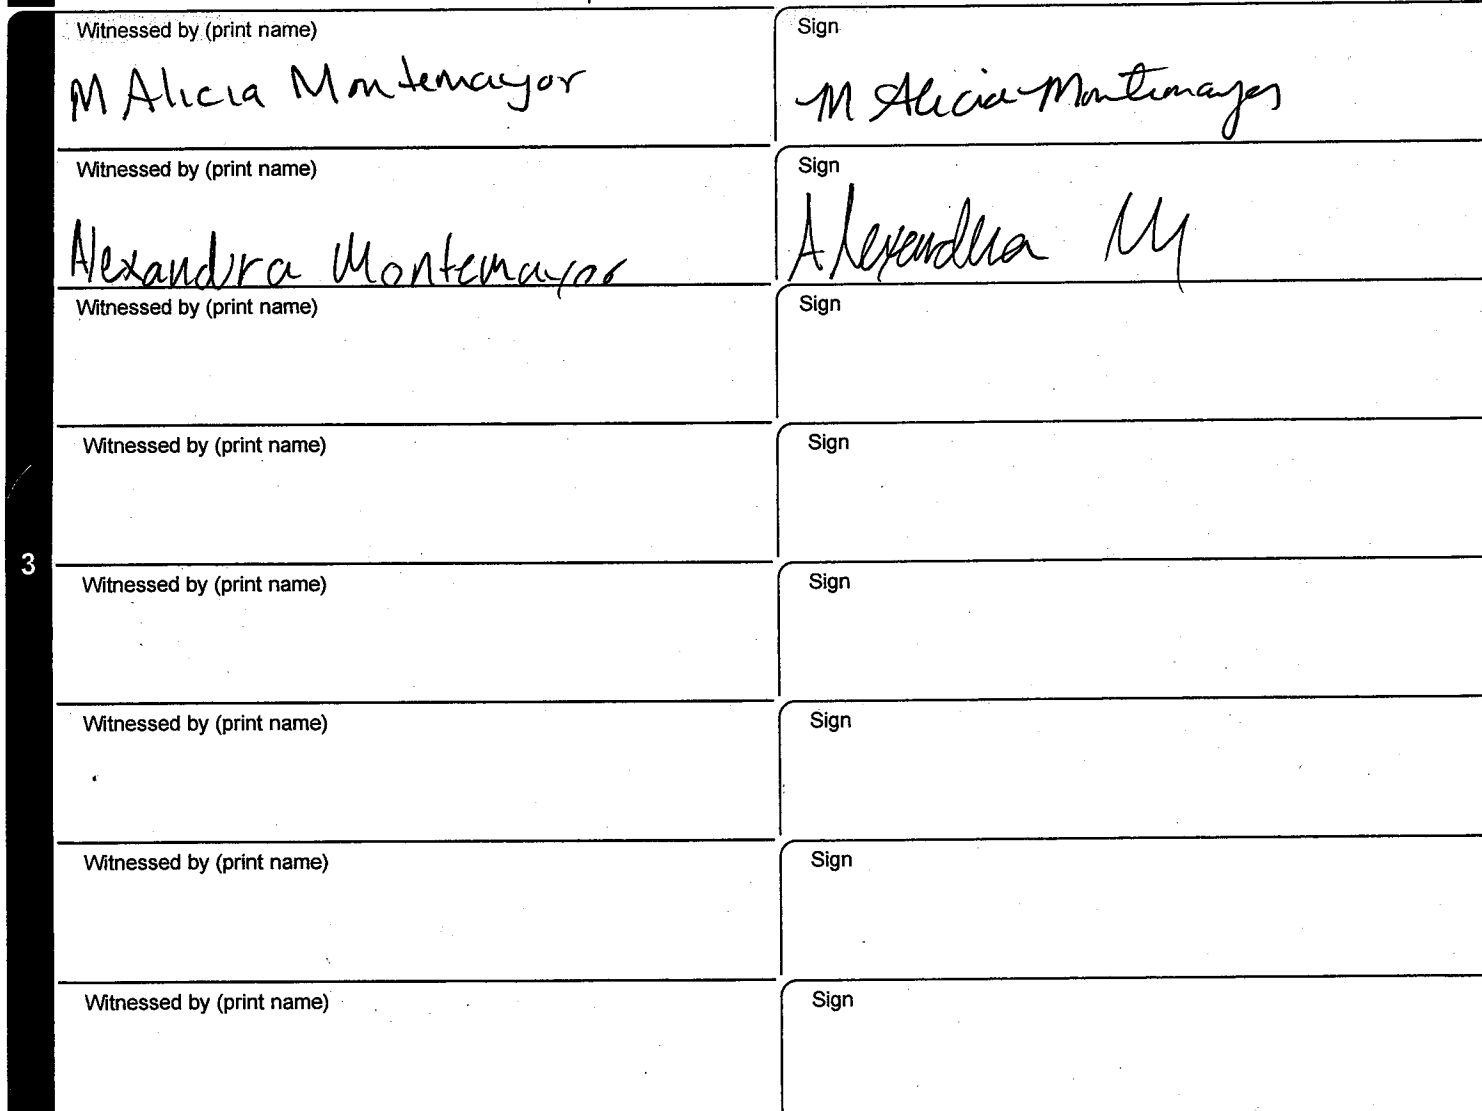 Witnessed by (print name) Sign
M Alicia Montemayor M Alicia Montemayor
Witnessed by (print name) Sign
Alexandra Montemayor Alexandra M
Witnessed by (print name) Sign
Witnessed by (print name) Sign
3
Witnessed by (print name) Sign
Witnessed by (print name) Sign
Witnessed by (print name) Sign
Witnessed by (print name) Sign